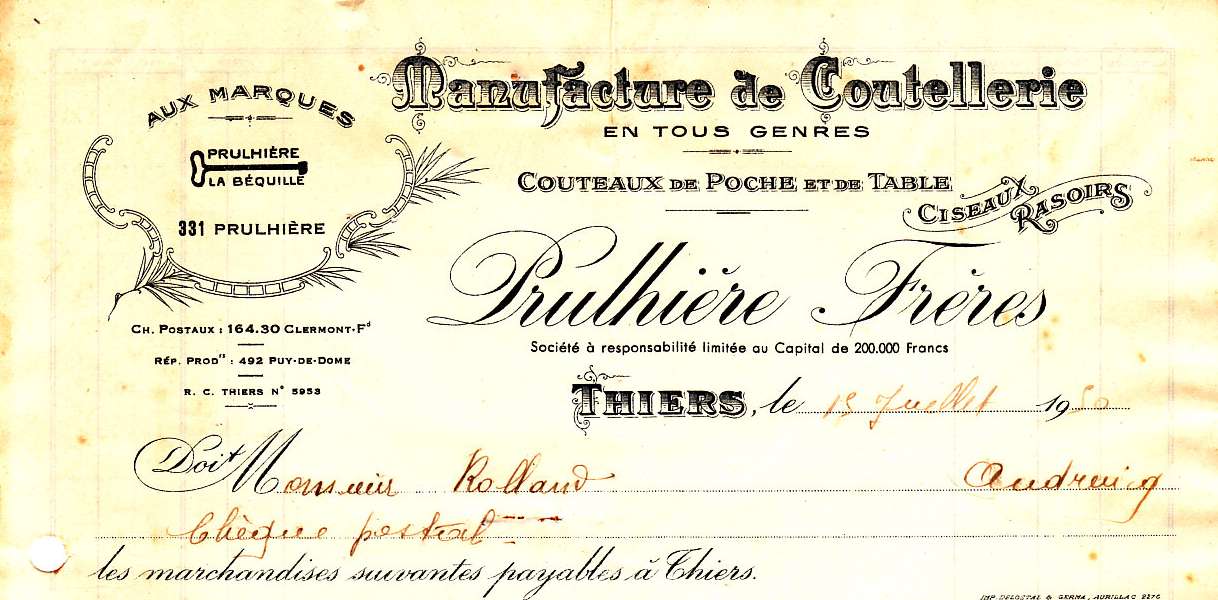 AUX MARQUES
PRULHIÈRE
LA BÉQUILLE
331 PRULHIÈRE
CH. POSTAUX : 164.30 CLERMONT-Fd
RÉP. PRODrs : 492 PUY-DE-DOME
R. C. THIERS N° 5953
Manufacture de Coutellerie
EN TOUS GENRES
COUTEAUX DE POCHE ET DE TABLE
CISEAUX RASOIRS
Prulhière Frères
Société à responsabilité limitée au Capital de 200.000 Francs
THIERS, le 13 Juillet 1950
Doit Monsieur Rolland Audruicq
Chèque postal
les marchandises suivantes payables à Thiers.
IMP. DELOSTAL & GERMA, AURILLAC 2276